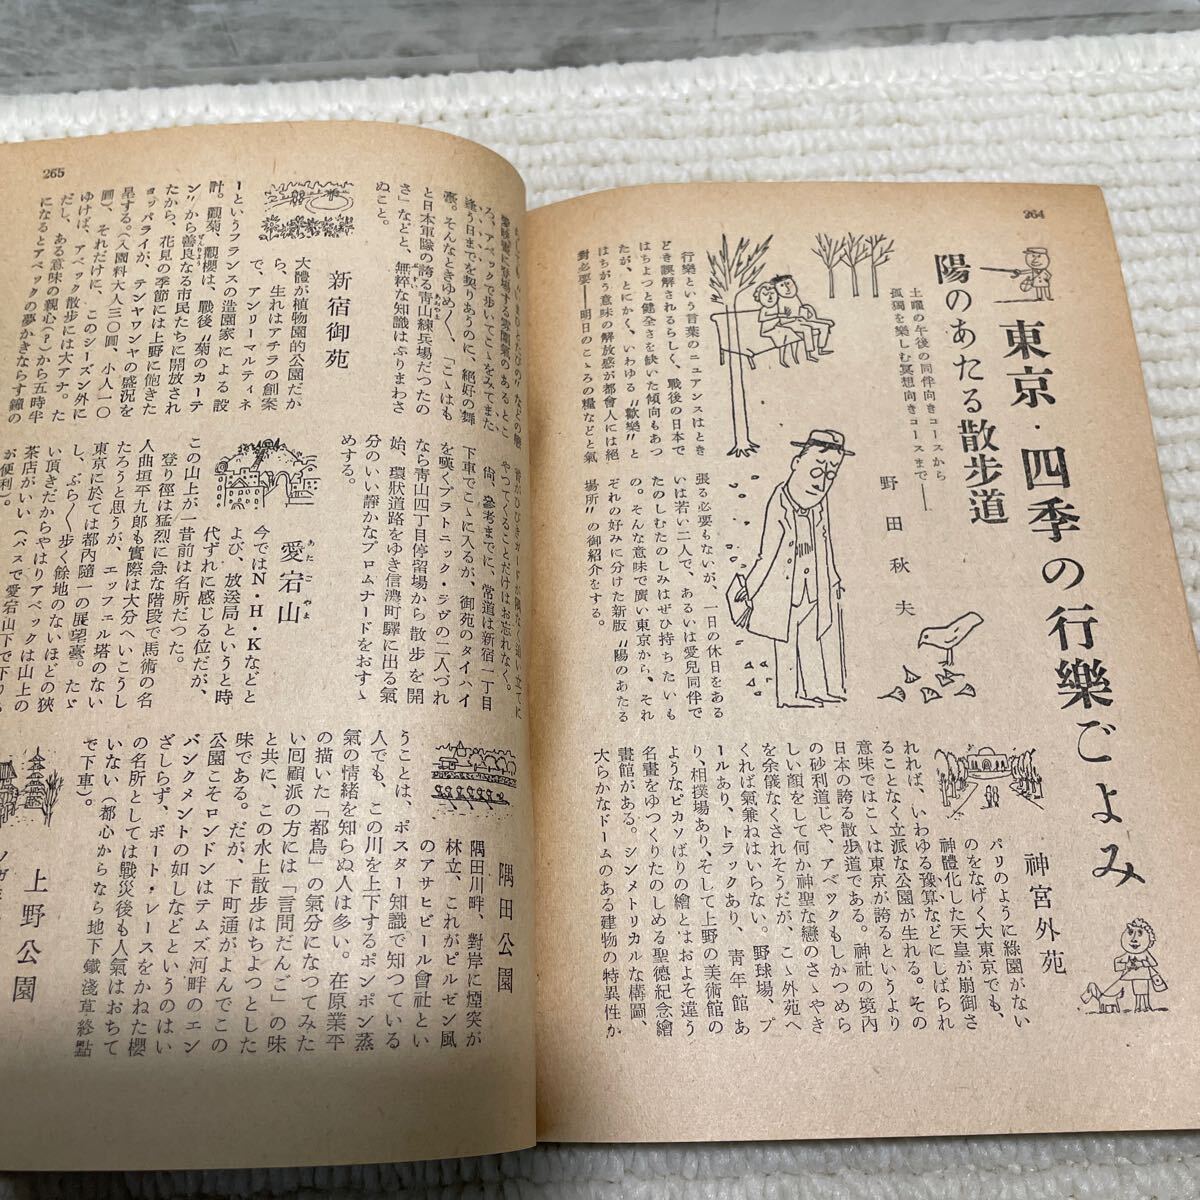 264
東京・四季の行樂ごよみ
陽のあたる散歩道
土曜の午後の同伴向きコースから
孤獨を樂しむ冥想向きコースまで――
野田秋夫
行樂という言葉のニュアンスはとき
どき誤解されるらしく、戰後の日本で
はちよつと健全さを缺いた傾向もあつ
たが、とにかく、いわゆる〝歡樂〟と
はちがう意味の解放感が都會人には絕
對必要――明日のこゝろの糧などと氣
張る必要もないが、一日の休日をある
いは若い二人で、あるいは愛兒同伴で
たのしむたのしみはぜひ持ちたいも
の。そんな意味で廣い東京から、それ
ぞれの好みに分けた新版〝陽のあたる
場所〟の御紹介をする。
神宮外苑
パリのように綠園がない
のをなげく大東京でも、
神體化した天皇が崩御さ
れれば、いわゆる豫算などにしばられ
ることなく立派な公園が生れる。その
意味ではこゝは東京が誇るというより
日本の誇る散歩道である。神社の境內
の砂利道じや、アベックもしかつめら
しい顏をして何か神聖な戀のさゝやき
を余儀なくされそうだが、こゝ外苑へ
くれば氣兼ねはいらない。野球場、プ
ールあり、トラックあり、靑年館あ
り、相撲場あり、そして上野の美術館の
ようなピカソばりの繪とはおよそ違う
名畫をゆつくりたのしめる聖德紀念繪
畫館がある。シンメトリカルな構圖、
大らかなドームのある建物の特異性か
265
ろ、アベックで歩いてこゝをみてまた
逢う日までを契りあうのに、絕好の舞
臺。そんなときゆめ〱、「こゝはも
と日本軍隊の誇る靑山練兵場だつたの
さ」などと、無粹な知識はふりまわさ
ぬこと。
新宿御苑
大體が植物園的公園だか
ら、生れはアチラの創案
で、アンリーマルティネ
ーというフランスの造園家による設
計。觀菊、觀櫻は、戰後〝菊のカーテ
ン〟から善良なる市民たちに開放され
たから、花見の季節には上野に飽きた
ヨッパライが、テンヤワンヤの盛況を
呈する。(入園料大人三〇圓、小人一〇
圓)、それだけに、このシーズン外に
ゆけば、アベック散歩には大アナ。た
だし、ある意味の親心(?)から五時半
になるとアベックの夢かきならす鐘の
やつてくることだけはお忘れなく。
尙、參考までに、常道は新宿一丁目
下車でこゝに入るが、御苑のタイハイ
を嘆くプラトニック・ラヴの二人づれ
なら靑山四丁目停留場から散歩を開
始、環狀道路をゆき信濃町驛に出る氣
分のいい靜かなプロムナードをおすゝ
めする。
愛宕山
今ではN・H・Kなどと
よび、放送局というと時
代ずれに感じる位だが、
この山上が一昔前は名所だつた。
登り徑は猛烈に急な階段で馬術の名
人曲垣平九郎も實際は大分へいこうし
たろうと思うが、エッフェル塔のない
東京に於ては都內隨一の展望臺。たゞ
し、ぶら〱步く餘地のないほどの狹
い頂きだからやはりアベックは山上の
茶店がいい(バスで愛宕山下で下り
が便利)。
隅田公園
隅田川畔、對岸に煙突が
林立、これがピルゼン風
のアサヒビール會社とい
うことは、ポスター知識で知つている
人でも、この川を上下するポンポン蒸
氣の情緖を知らぬ人は多い。在原業平
の描いた「都鳥」の氣分になつてみた
い囘顧派の方には「言問だんご」の味
と共に、この水上散歩はちよつとした
味である。だが、下町通がよんでこの
公園こそロンドンはテムズ河畔のエン
バンクメントの如しなどというのはい
ざしらず、ボート・レースをかねた櫻
の名所としては戰災後も人氣はおちて
いない(都心からなら地下鐵淺草終點
で下車)。
上野公園